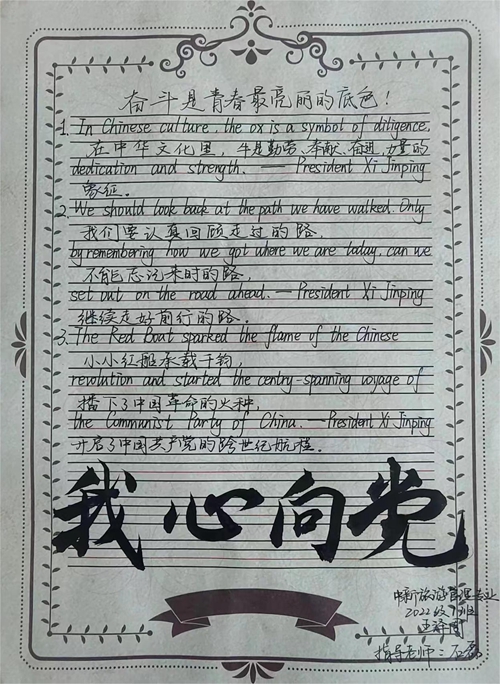 奋斗是青春最亮丽的底色！
1. In Chinese culture, the ox is a symbol of diligence,
在中华文化里，牛是勤劳、奉献、奋进、力量的
dedication and strength. — President Xi Jinping
象征。
2. We should look back at the path we have walked. Only
我们要认真回顾走过的路，
by remembering how we got where we are today, can we
不能忘记来时的路，
set out on the road ahead. — President Xi Jinping
继续走好前行的路。
3. The Red Boat sparked the flame of the Chinese
小小红船承载千钧，
revolution and started the centry-spanning voyage of
播下了中国革命的火种，
the Communist Party of China. — President Xi Jinping
开启了中国共产党的跨世纪航程。
我心向党
旅游管理专业
2022级
指导老师：石磊